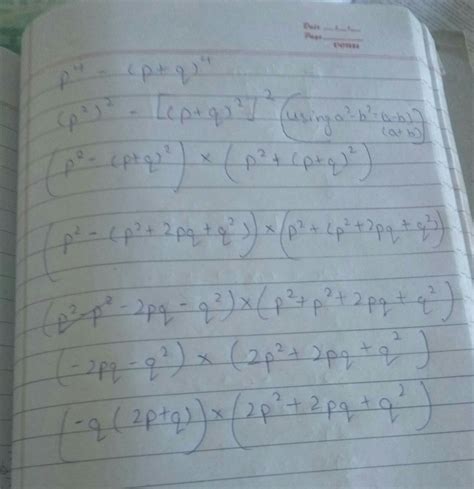 Date
Page
p⁴ - (p+q)⁴
(p²)² - [(p+q)²]² (using a²-b²=(a-b)(a+b))
(p² - (p+q)²) × (p² + (p+q)²)
(p² - (p²+2pq+q²)) × (p²+(p²+2pq+q²))
(p²-p² - 2pq - q²) × (p²+p²+2pq+q²)
(-2pq - q²) × (2p²+2pq+q²)
(-q(2p+q)) × (2p²+2pq+q²)